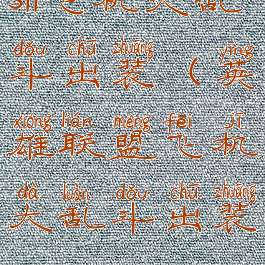 dǒu chū zhuāng yīng
斗出装(英
xióng lián méng fēi jī
雄联盟飞机
dà luàn dǒu chū zhuāng
大乱斗出装